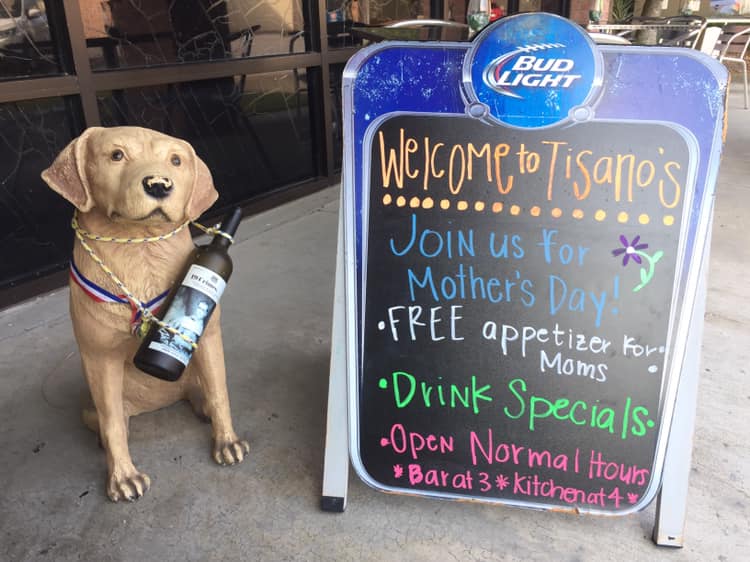 BUD
LIGHT
Welcome to Tisano's
JOIN us for
Mother's Day!
•FREE appetizer For
Moms •
•Drink Specials•
•OPEN Normal Hours
*Bar at 3 * Kitchen at 4 *
19 Crimes